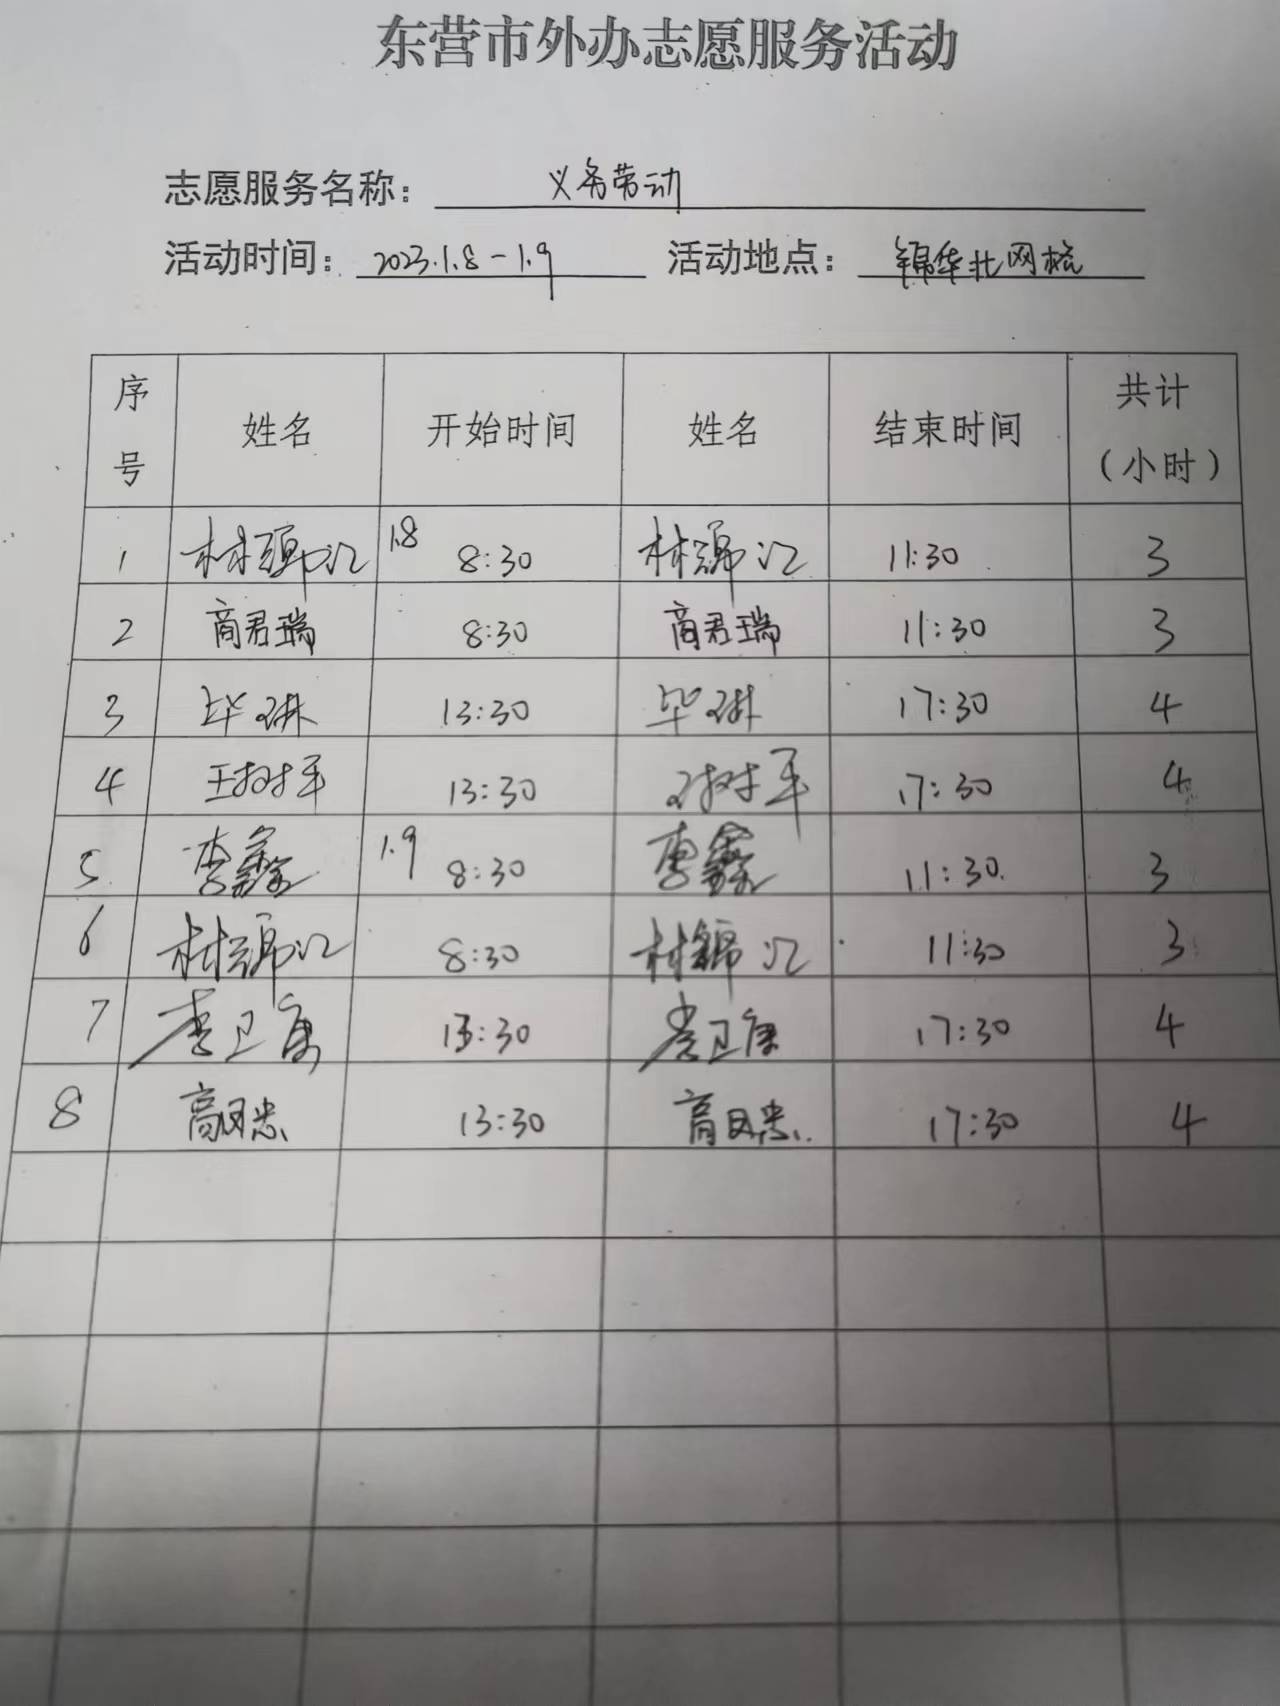 东营市外办志愿服务活动
志愿服务名称： 义务劳动
活动时间： 2023.1.8-1.9 活动地点： 锦华北网格
序号 姓名 开始时间 姓名 结束时间 共计（小时）
1 林锦江 1.8 8:30 林锦江 11:30 3
2 商君瑞 8:30 商君瑞 11:30 3
3 毕琳 13:30 毕琳 17:30 4
4 王树军 13:30 王树军 17:30 4
5 李鑫 1.9 8:30 李鑫 11:30. 3
6 林锦江 8:30 林锦江 11:30 3
7 李卫康 13:30 李卫康 17:30 4
8 高风忠 13:30 高风忠 17:30 4